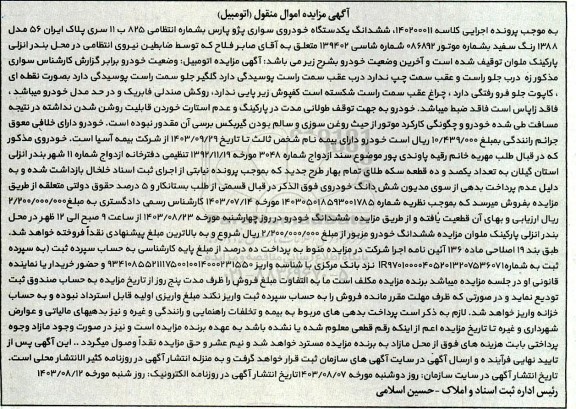 آگهی مزایده اموال منقول (اتومبیل)
به موجب پرونده اجرایی کلاسه ۱۴۰۲۰۰۰۱۱، ششدانگ یکدستگاه خودروی سواری پژو پارس بشماره انتظامی ۸۲۵ ب ۱۱ سری پلاک ایران ۵۶ مدل
۱۳۸۸ رنگ سفید بشماره موتور ۰۸۶۸۹۲ شماره شاسی ۱۳۹۴۰۲ متعلق به آقای صابر فلاح که توسط ضابطین نیروی انتظامی در محل بندر انزلی
پارکینگ ملوان توقیف شده است و آخرین وضعیت خودرو بشرح زیر می باشد: آگهی مزایده اتومبیل: وضعیت خودرو برابر گزارش کارشناس سواری
مذکور زه درب جلو راست و عقب سمت چپ ندارد درب عقب سمت راست پوسیدگی دارد گلگیر جلو سمت راست پوسیدگی دارد بصورت نقطه ای
، کاپوت جلو فرو رفتگی دارد ، چراغ عقب سمت راست شکسته است کفپوش زیر پایی ندارد، روکش صندلی فابریک و در حد مدل خودرو میباشد ،
فاقد زاپاس است فاقد ضبط میباشد. خودرو به جهت توقف طولانی مدت در پارکینگ و عدم استارت خوردن قابلیت روشن شدن نداشته در نتیجه
مسافت طی شده خودرو و چگونگی کارکرد موتور از حیث روغن سوزی و سالم بودن گیربکس برسی آن مقدور نبوده است. خودرو دارای خلافی معوق
جرائم رانندگی بمبلغ ۱۰/۴۳۹/۰۰۰ ریال است خودرو دارای بیمه نام شخص ثالث تا تاریخ ۱۴۰۳/۰۹/۲۹ از شرکت بیمه آسیا است. خودروی مذکور
که در قبال طلب مهریه خانم رقیه پاوندی پور موضوع سند ازدواج شماره ۳۰۴۸ مورخه ۱۳۹۲/۱۱/۱۹ تنظیمی دفترخانه ازدواج شماره ۱۱ شهر بندر انزلی
استان گیلان به تعداد یکصد و ده قطعه سکه طلای تمام بهار طرح جدید که بموجب پرونده نیابتی از اجرای ثبت اسناد خلخال بازداشت شده و به
دلیل عدم پرداخت بدهی از سوی مدیون شش دانگ خودروی فوق الذکر در قبال قسمتی از طلب بستانکار و ۵ درصد حقوق دولتی متعلقه از طریق
مزایده بفروش میرسد که بموجب نظریه شماره ۱۴۰۳۰۵۰۱۸۵۹۳۰۰۱۷۸۵ مورخه ۱۴۰۳/۰۷/۱۴ کارشناس رسمی دادگستری به مبلغ ۲/۲۰۰/۰۰۰/۰۰۰
ریال ارزیابی و بهای آن قطعیت یافته و از طریق مزایده ششدانگ خودرو در روز چهارشنبه مورخه ۱۴۰۳/۰۸/۲۳ از ساعت ۹ صبح الی ۱۲ ظهر در محل
بندر انزلی پارکینگ ملوان مزایده ششدانگ خودرو مزبور از مبلغ ۲/۲۰۰/۰۰۰/۰۰۰ ریال شروع و به بالاترین مبلغ پیشنهادی نقداً فروخته خواهد شد.
طبق بند ۱۹ اصلاحی ماده ۱۳۶ آئین نامه اجرا شرکت در مزایده منوط به پرداخت ده درصد از مبلغ پایه کارشناسی به حساب سپرده ثبت (به سپرده
ثبت به شماره IR۹۷۰۱۰۰۰۰۴۰۵۲۰۱۳۲۰۷۵۳۶۰۷۱ نزد بانک مرکزی با شناسه واریز ۹۳۴۱۰۸۵۵۲۱۱۱۷۵۰۰۱۰۰۱۴۰۰۰۲۳۱۵۵۰ و حضور خریدار یا نماینده
قانونی او در جلسه مزایده میباشد برنده مزایده مکلف است ما به التفاوت مبلغ فروش را ظرف مدت پنج روز از تاریخ مزایده به حساب صندوق ثبت
تودیع نماید و در صورتی که ظرف مهلت مقرر مانده فروش را به حساب سپرده ثبت واریز نکند مبلغ واریزی اولیه قابل استرداد نبوده و به حساب
خزانه واریز خواهد شد. لازم به ذکر است پرداخت بدهی های مربوط به بیمه و تخلفات راهنمایی و رانندگی و غیره و نیز بدهیهای مالیاتی و عوارض
شهرداری و غیره تا تاریخ مزایده اعم از اینکه رقم قطعی معلوم شده یا نشده باشد به عهده برنده مزایده است و نیز در صورت وجود مازاد وجوه
پرداختی بابت هزینه های فوق از محل مازاد به برنده مزایده مسترد خواهد شد و نیم عشر و حق مزایده نقداً وصول میگردد .. این آگهی پس از
تایید نهایی فرآیند ه و ارسال آگهی در سایت آگهی های سازمان ثبت قرار خواهد گرفت و به منزله انتشار آگهی در روزنامه کثیر الانتشار محلی است.
تاریخ انتشار آگهی در سایت سازمان: روز دوشنبه مورخه ۱۴۰۳/۰۸/۰۷ تاریخ انتشار آگهی در روزنامه الکترونیک: روز شنبه مورخه ۱۴۰۳/۰۸/۱۲
رئیس اداره ثبت اسناد و املاک - حسین اسلامی